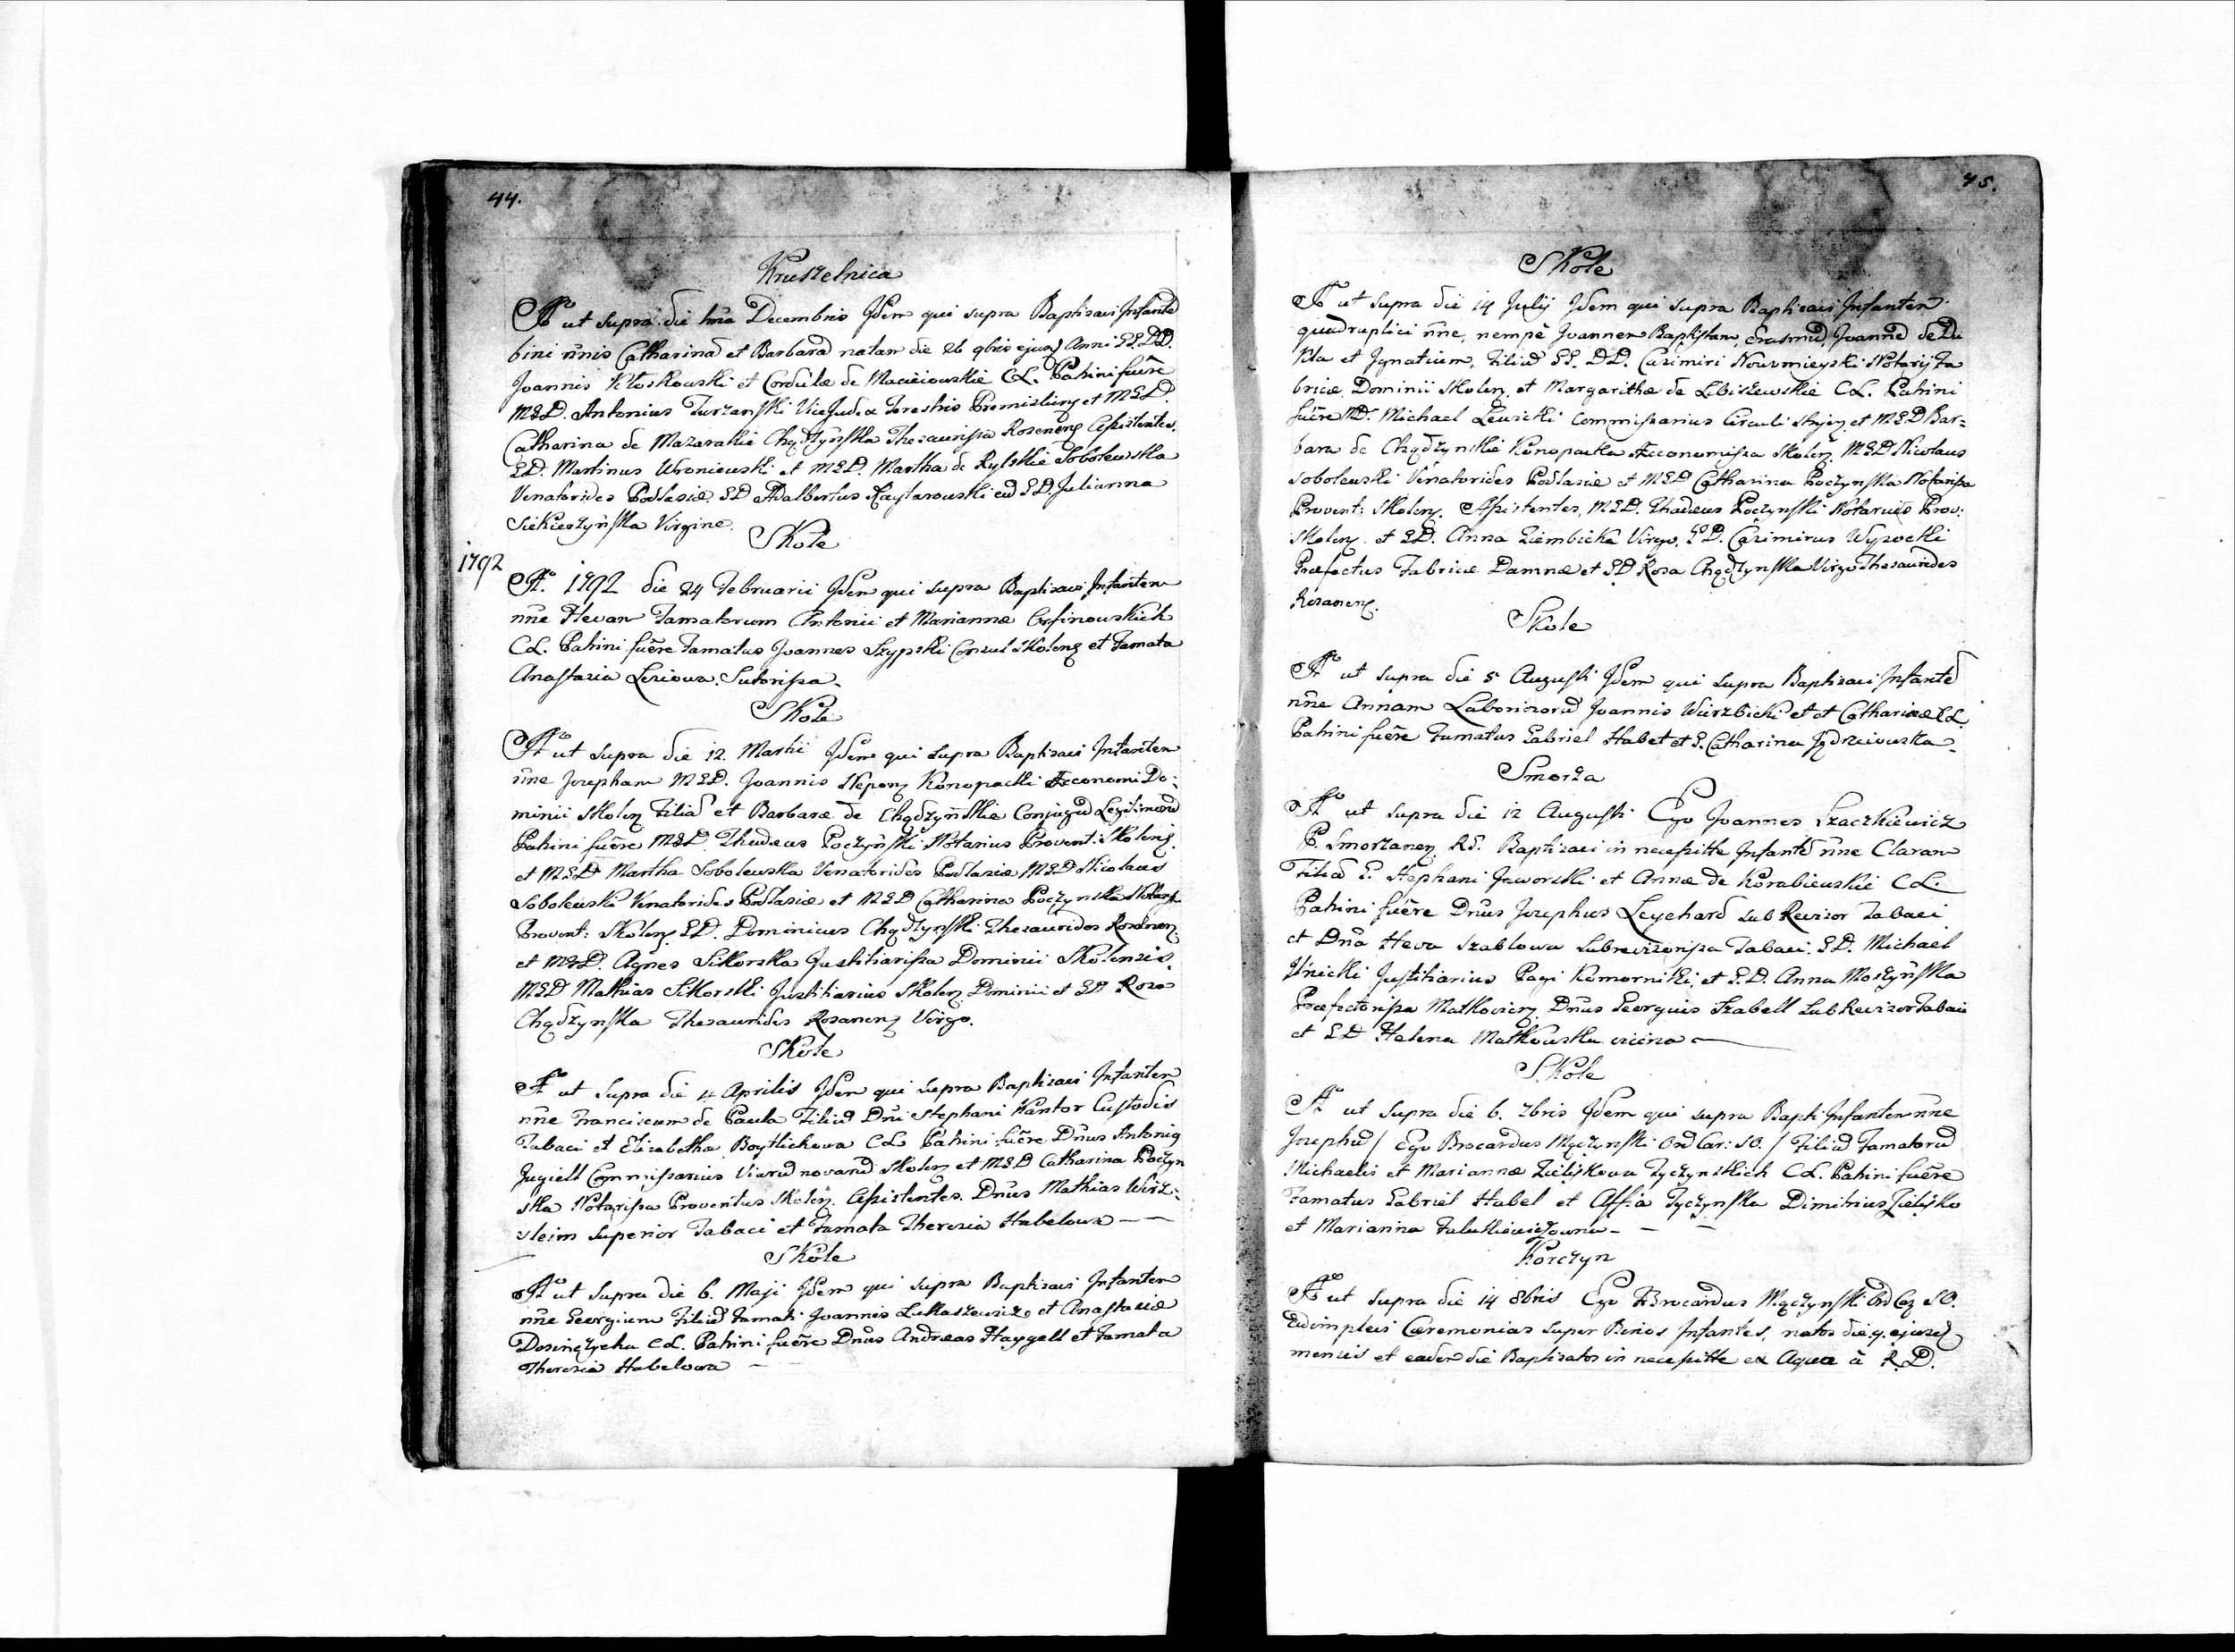 44.
Kruszelnica
Ao ut supra die 1ma Decembris Idem qui supra Baptisavi Infantē
bini nn̄is Catharinā et Barbarā natas die 26 9bris ejusd Anni GG.DD.
Joannis Kłoskowski et Cordulæ de Macieiowskie CL. Patrini fuēre
MGD. Antonius Turzanſki ViceJudex Terestris Premislieng et MGD.
Catharina de Mazarakie Chądzyńſka Thesaurissa Rosaneng Assistentes.
GD. Martinus Wroniewski et MGD. Martha de Rylskie Sobolewska
Venatorides Podlasiæ GD Adalbertus Raytarowski cū GD. Julianna
Siekierzyńſka Virgine.
Skole
1792
Ao. 1792 die 24 Februarii Idem qui supra Baptisavi Infantem
nn̄e Hevam Famatorum Antonii et Mariannæ Orſinowskich
CL. Patrini fuēre Famatus Joannes Szypski Consul Skoleng et Famata
Anastasia Lesiowa Sutorissa.
Skole
Ao ut supra die 12. Martii Idem qui supra Baptisavi Infantem
nn̄e Josepham MGD. Joannis Nepom Konopacki Æconomi Do-
minii Skoleng Filiā et Barbaræ de Chądzyńſkie Conjugū Legitimorū
Patrini fuēre MGD. Thadeus Poczyńſki Notarius Provent: Skoleng.
et MGD Martha Sobolewska Venatorides Podlasiæ MGD Nicolaus
Sobolewski Venatorides Podlasiæ et MGD Catharina Poczynska Notarissa
Provent: Skoleng. GD. Dominicus Chądzynſki Thesaurides Rosaneng.
et MGD. Agnes Sikorska Justitiarissa Dominii Skolensis.
MGD Mathias Sikorski Justitiarius Skoleng Dominii et GD Rosa
Chądzynſka Thesaurides Rosaneng Virgo.
Skole
Ao ut supra die 4 Aprilis Idem qui supra Baptisavi Infantem
nn̄e Franciscum de Paula Filiū Dn̄i Stephani Kantor Custodis
Tabaci et Elisabetha Boytlichowa CL Patrini fuēre Dn̄us Antonig
Jugiell Commissarius Viarū novarū Skoleng et MGD Catharina Poczyn
ska Notarissa Proventus Skoleng. Assistentes. Dn̄us Mathias Wirz-
sleim Superior Tabaci et Famata Theresia Habelowa
Skole
Ao ut supra die 6. Maji Idem qui supra Baptisavi Infantem
nn̄e Georgium Filiū Famati Joannis Łukaszewicz et Anastasiæ
Dosinczycha CL. Patrini fuēre Dn̄us Andreas Haygell et Famata
Theresia Habelowa
45.
Skole
Ao ut supra die 14 Julij Idem qui supra Baptisavi Infantem
quadruplici nn̄e, nempè Joannem Baptistam, Erasmū, Joannē de Du
kla et Ignatium, Filiū GG. DD. Casimiri Nowomieyski Notarij Fa
bricæ Dominii Skoleng. et Margarithæ de Libiszewskie CL. Patrini
fuēre MD. Michael Lewicki Commissarius Circuli Stryjeng et MGD Bar-
bara de Chądzynskie Konopacka Æconomissa Skoleng. MGD Nicolaus
Sobolewski Venatorides Podlasiæ et MGD Catharina Poczynſka Notarissa
Provent: Skoleng. Assistentes, MGD. Thadeus Poczynſki Notarius Prov:
Skoleng. et GD. Anna Ziembicka Virgo. GD. Casimirus Wysocki
Præfectus Fabricæ Damnæ et GD Rosa Chądzynſka Virgo Thesaurides
Rosaneng.
Skole
Ao ut supra die 5 Augusti Idem qui supra Baptisavi Infantē
nn̄e Annam Laboriosorū Joannis Wierzbicki et et Catharinæ CL.
Patrini fuēre Famatus Gabriel Habel et G. Catharina Jędrzeiowska
Smorza
Ao ut supra die 12 Augusti Ego Joannes Szaczkiewicz
P. Smorzaneng RG. Baptisavi in necessitte Infantē nn̄e Claram
Filiā G. Stephani Jaworski et Annæ de Korabiewskie CL.
Patrini fuēre Dn̄us Josephus Leychard sub Revisor Tabaci
et Dn̄a Heva Szablowa Subrevisorissa Tabaci. GD. Michael
Ilnicki Justitiarius Pagi Komorniki, et G.D. Anna Moszyńſka
Præfectorissa Matkovieng. Dn̄us Georgius Szabell subRevizor Tabaci
et GD Helena Matkowska vicina
Skole
Ao ut supra die 6. 7bris Idem qui supra Bapti Infantem nn̄e
Josephū / Ego Brocardus Mączynſki Ord Car: SO. / Filiū Famatorū
Michaelis et Mariannæ Zieliskowa Tyczynskich CL. Patrini fuēre
Famatus Gabriel Habel et Affia Tyczynſka Dimitrius Zielisko
et Marianna Falutkiewiczowna
Korczyn
Ao ut supra die 14 8bris Ego Brocardus Mączynſki Ord Car SO.
adimplevi Cæremonias super Binos Infantes, natos die 9. ejusd
mensis et eadem die Baptisatos in necessitte ex Aqua à R.D.